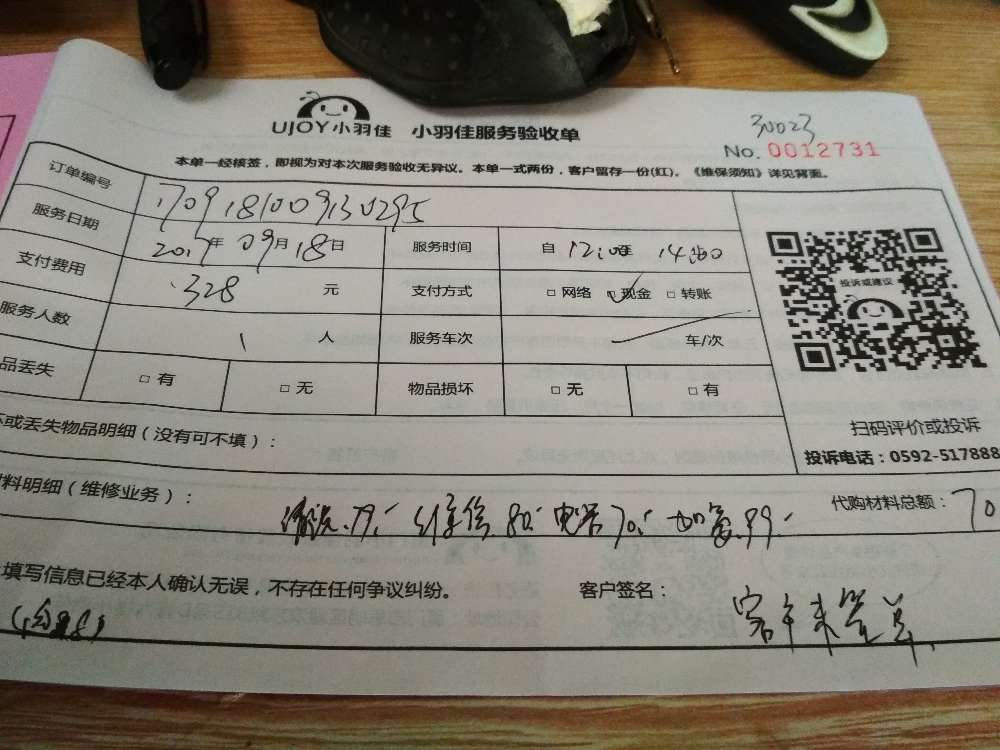 UJOY小羽佳 小羽佳服务验收单
30023
No. 0012731
本单一经核签，即视为对本次服务验收无异议。本单一式两份，客户留存一份(红)。《维保须知》详见背面。
订单编号 1709181009130295
服务日期 2017年09月18日 服务时间 自12:00至14:00
支付费用 328元 支付方式 □ 网络 □ 现金 □ 转账
服务人数 1人 服务车次 车/次
品丢失 □ 有 □ 无 物品损坏 □ 无 □ 有
投诉或建议
扫码评价或投诉
投诉电话：0592-517888
或丢失物品明细（没有可不填）：
料明细（维修业务）： 清洗.79.- 维修80.- 电容70.- 加氟.99.- 代购材料总额：70
填写信息已经本人确认无误，不存在任何争议纠纷。 客户签名：
客户未签单